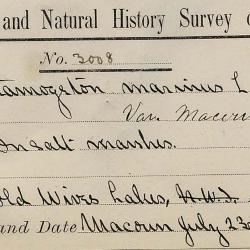 and Natural History Survey o
No. 3008
tamogeton marinus L
Var. Macou
In salt marshes.
Old Wives Lakes, N.W.T.
and Date Macoun July 23